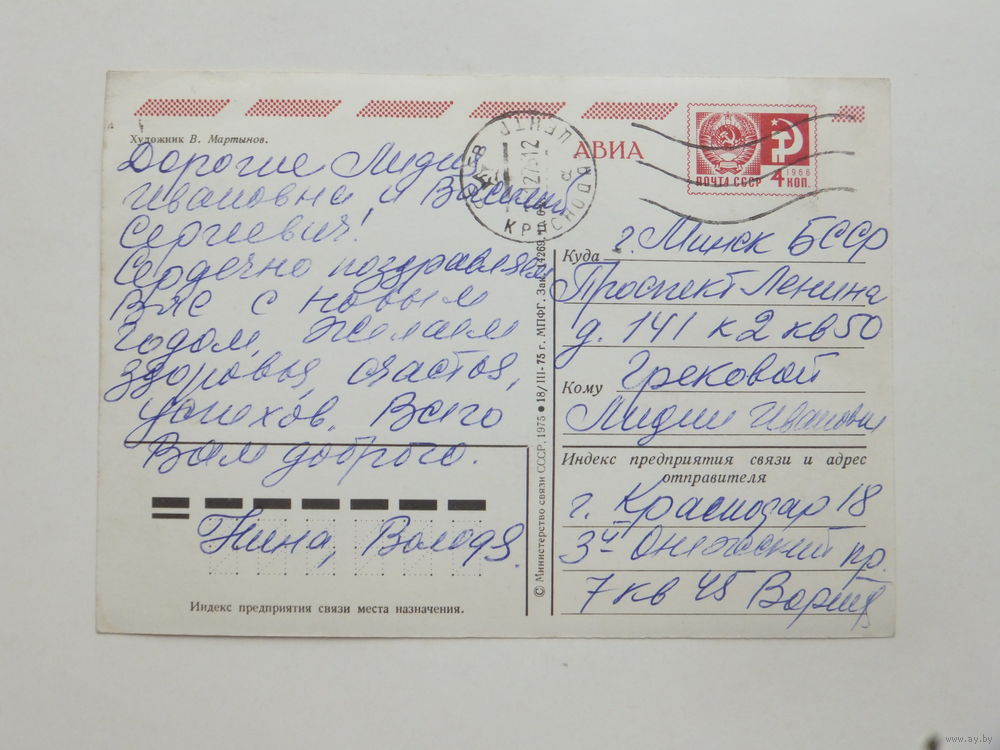 Художник В. Мартынов.
Дорогие Лидия
Ивановна и Василий
Сергиевич!
Сердечно поздравляем
Вас с новым
годом, желаем
здоровья, счастья,
успехов. Всего
Вам доброго.
Нина, Володя
Индекс предприятия связи места назначения.
© Министерство связи СССР, 1975 • 18/III-75 г. МПФГ. Зак. 14269.
АВИА
ПОЧТА СССР 4 КОП.
1966
Куда г. Минск БССР
Проспект Ленина
д. 141 к 2 кв 50
Кому Грековой
Лидии Ивановне
Индекс предприятия связи и адрес
отправителя
г. Краснодар 18
3й Онежский пр.
7 кв 45
www.ay.by